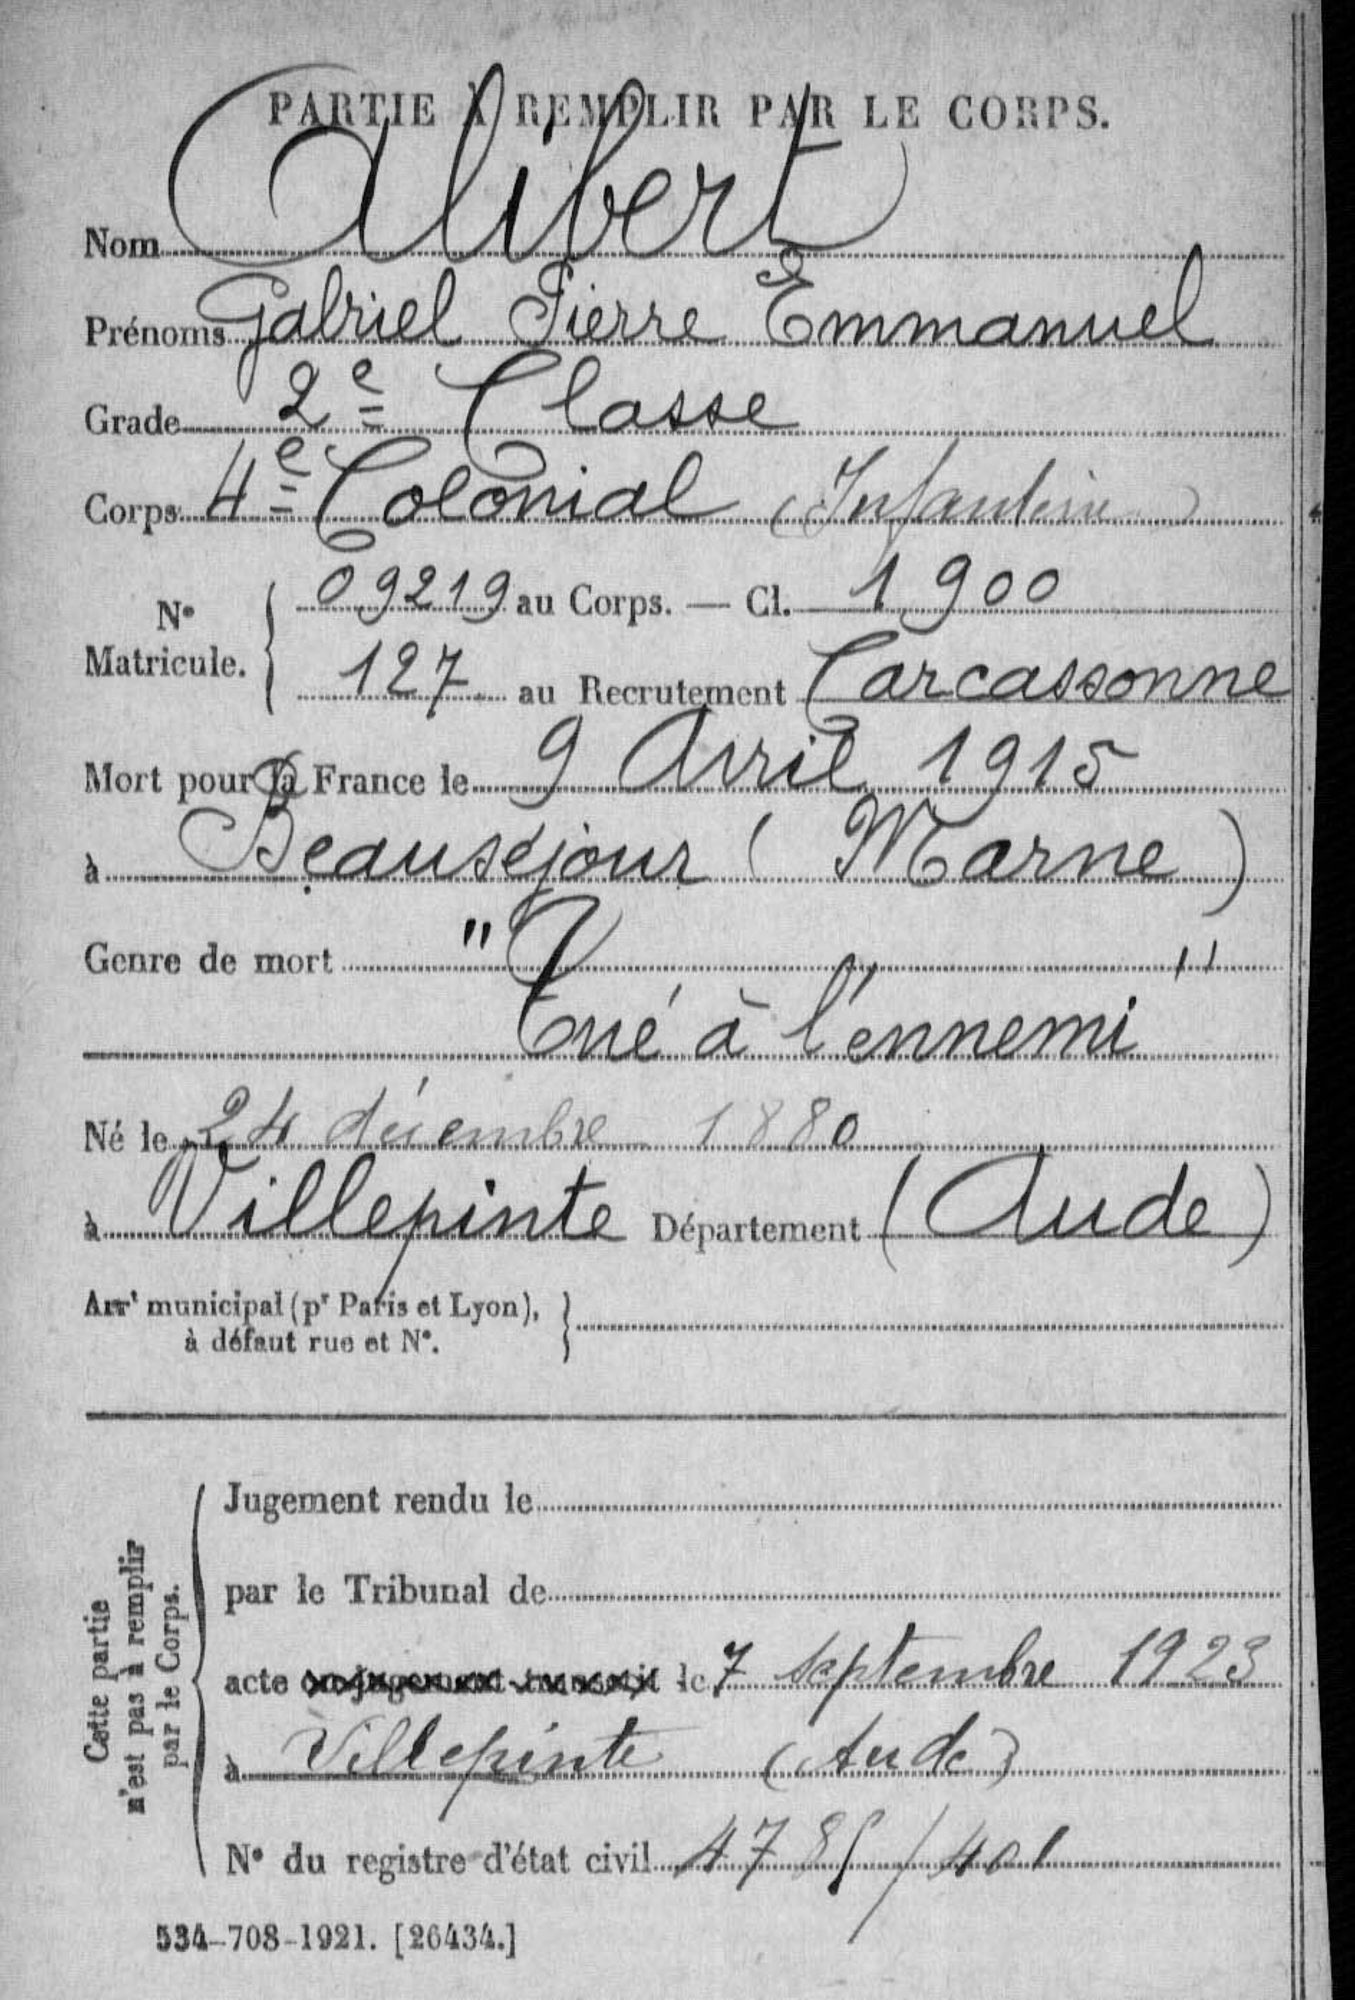 PARTIE À REMPLIR PAR LE CORPS.
Nom Alibert
Prénoms Gabriel Pierre Emmanuel
Grade 2e Classe
Corps 4e Colonial (Infanterie)
No Matricule. { 09219 au Corps. — Cl. 1900
127 au Recrutement Carcassonne
Mort pour la France le 9 Avril 1915
à Beauséjour (Marne)
Genre de mort " "
Tué à l'ennemi
Né le 24 décembre 1880
à Villepinte Département (Aude)
Arrt municipal (pr Paris et Lyon), }
à défaut rue et No.
Cette partie
n'est pas à remplir
par le Corps.
Jugement rendu le
par le Tribunal de
acte ou jugement transcrit le 7 septembre 1923
à Villepinte (Aude)
No du registre d'état civil 4785/401
534-708-1921. [26434.]